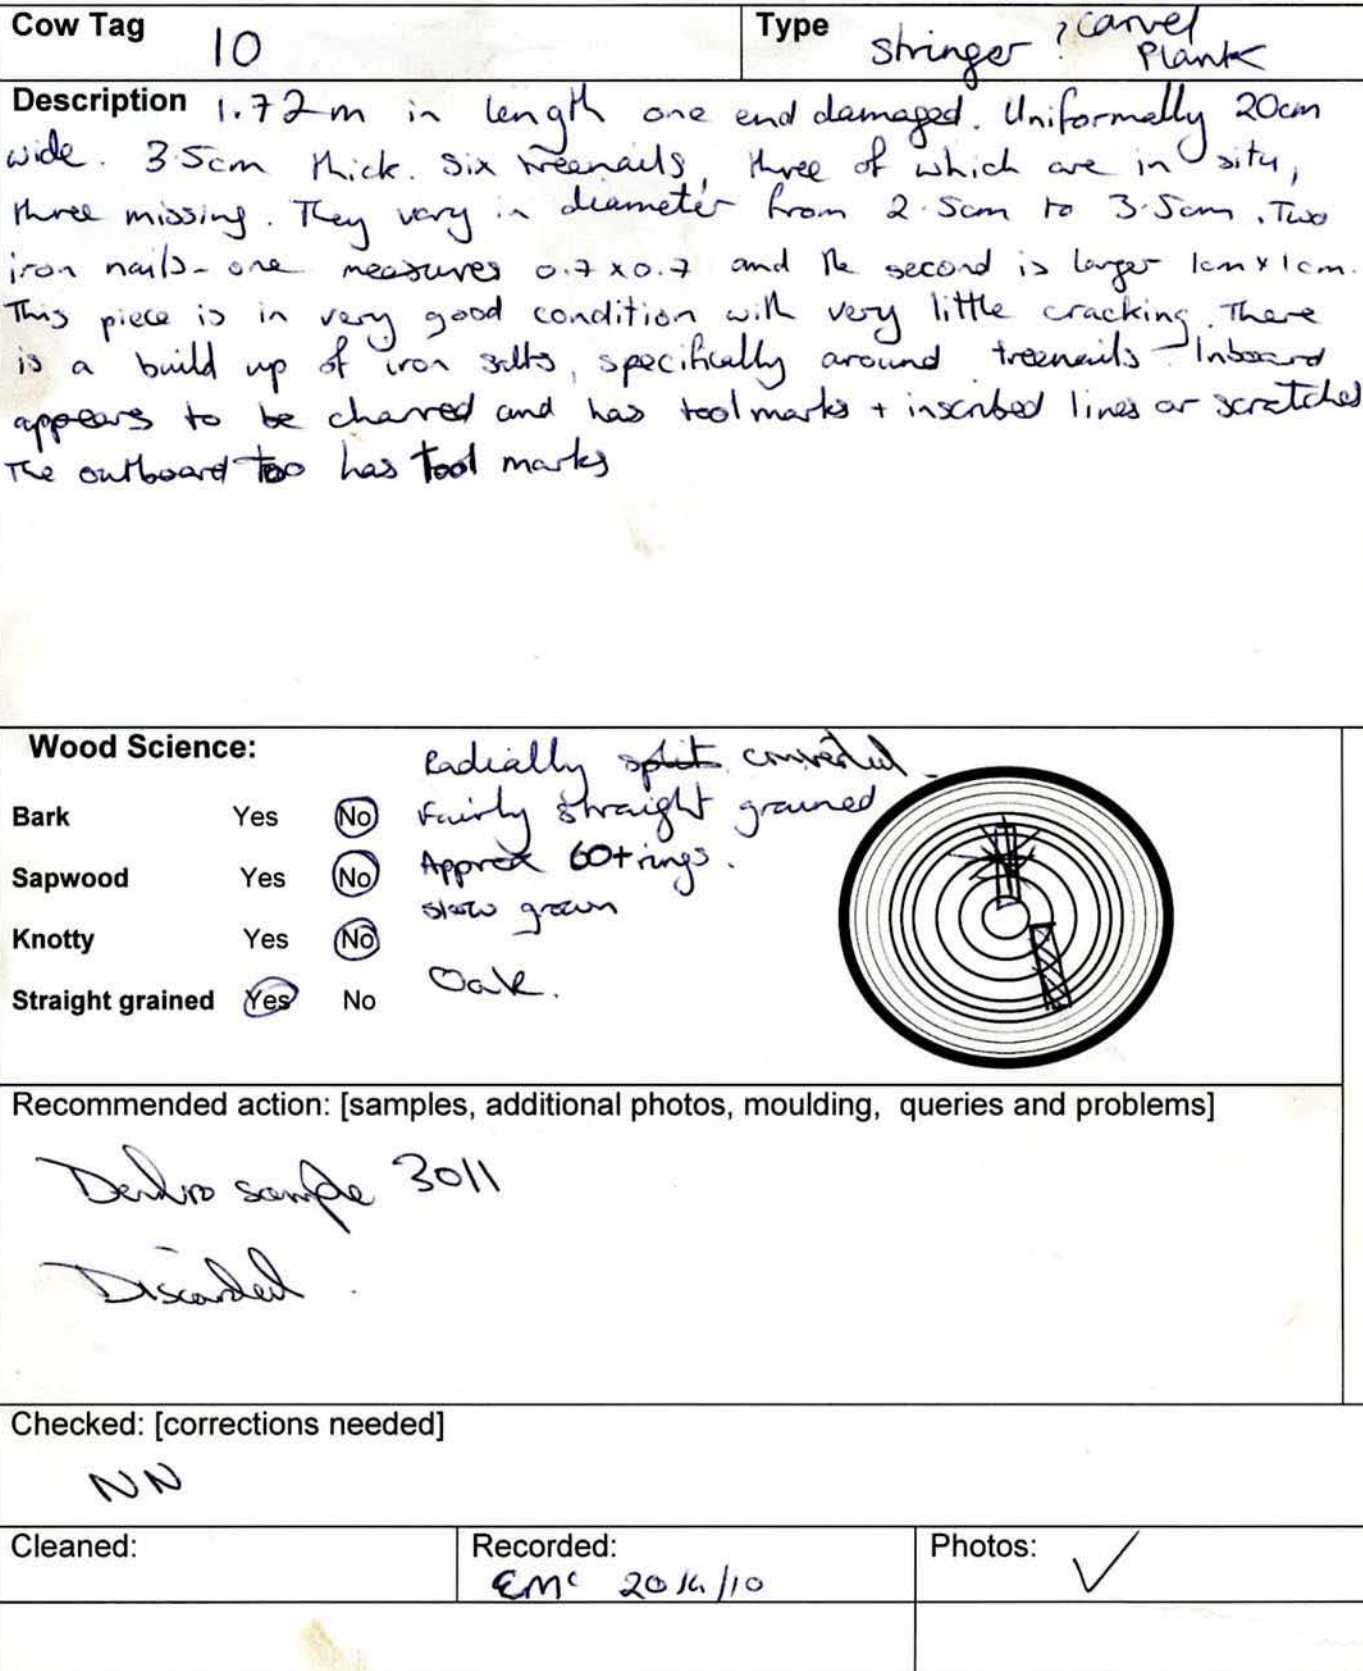 Cow Tag 10 Type stringer ? carvel
Plank
Description 1.72m in length one end damaged. Uniformally 20cm
wide. 3.5cm thick. Six treenails, three of which are in situ,
three missing. They vary in diameter from 2.5cm to 3.5cm. Two
iron nails - one measures 0.7 x 0.7 and the second is larger 1cm x 1cm.
This piece is in very good condition with very little cracking. There
is a build up of iron salts, specifically around treenails - Inboard
appears to be charred and has toolmarks + inscribed lines or scratches
The outboard too has tool marks
Wood Science: Radially split converted
Bark Yes No Fairly straight grained
Sapwood Yes No Approx 60+ rings.
slow grown
Knotty Yes No
Oak.
Straight grained Yes No
Recommended action: [samples, additional photos, moulding, queries and problems]
Dendro sample 3011
Discarded.
Checked: [corrections needed]
NN
Cleaned: Recorded: Photos: ✓
EMc /10